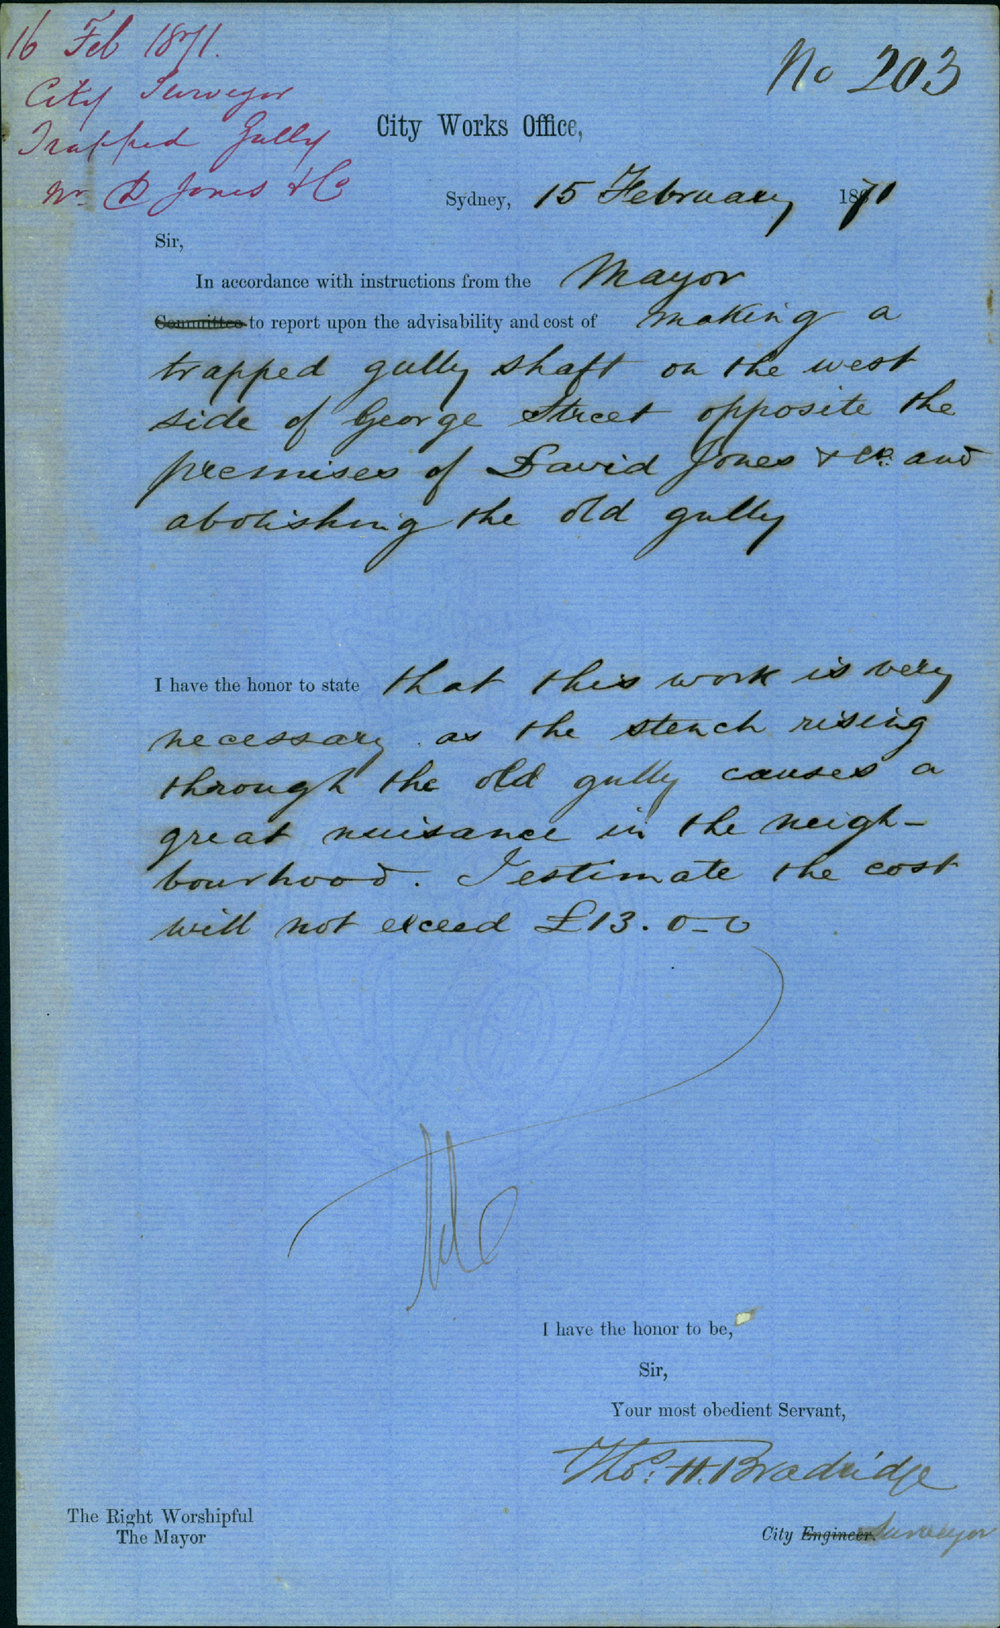 16 Feb 1871.
City Surveyor
Trapped Gully
Mr D Jones & Co
No 203
City Works Office,
Sydney, 15 February 1871
Sir,
In accordance with instructions from the Mayor
Committee to report upon the advisability and cost of making a
trapped gully shaft on the west
side of George Street opposite the
premises of David Jones & Co. and
abolishing the old gully
I have the honor to state that this work is very
necessary as the stench rising
through the old gully causes a
great nuisance in the neigh-
bourhood. I estimate the cost
will not exceed £13. 0-0
I have the honor to be,
Sir,
Your most obedient Servant,
Thos. H. Bradridge
The Right Worshipful
The Mayor
City Engineer. Surveyor